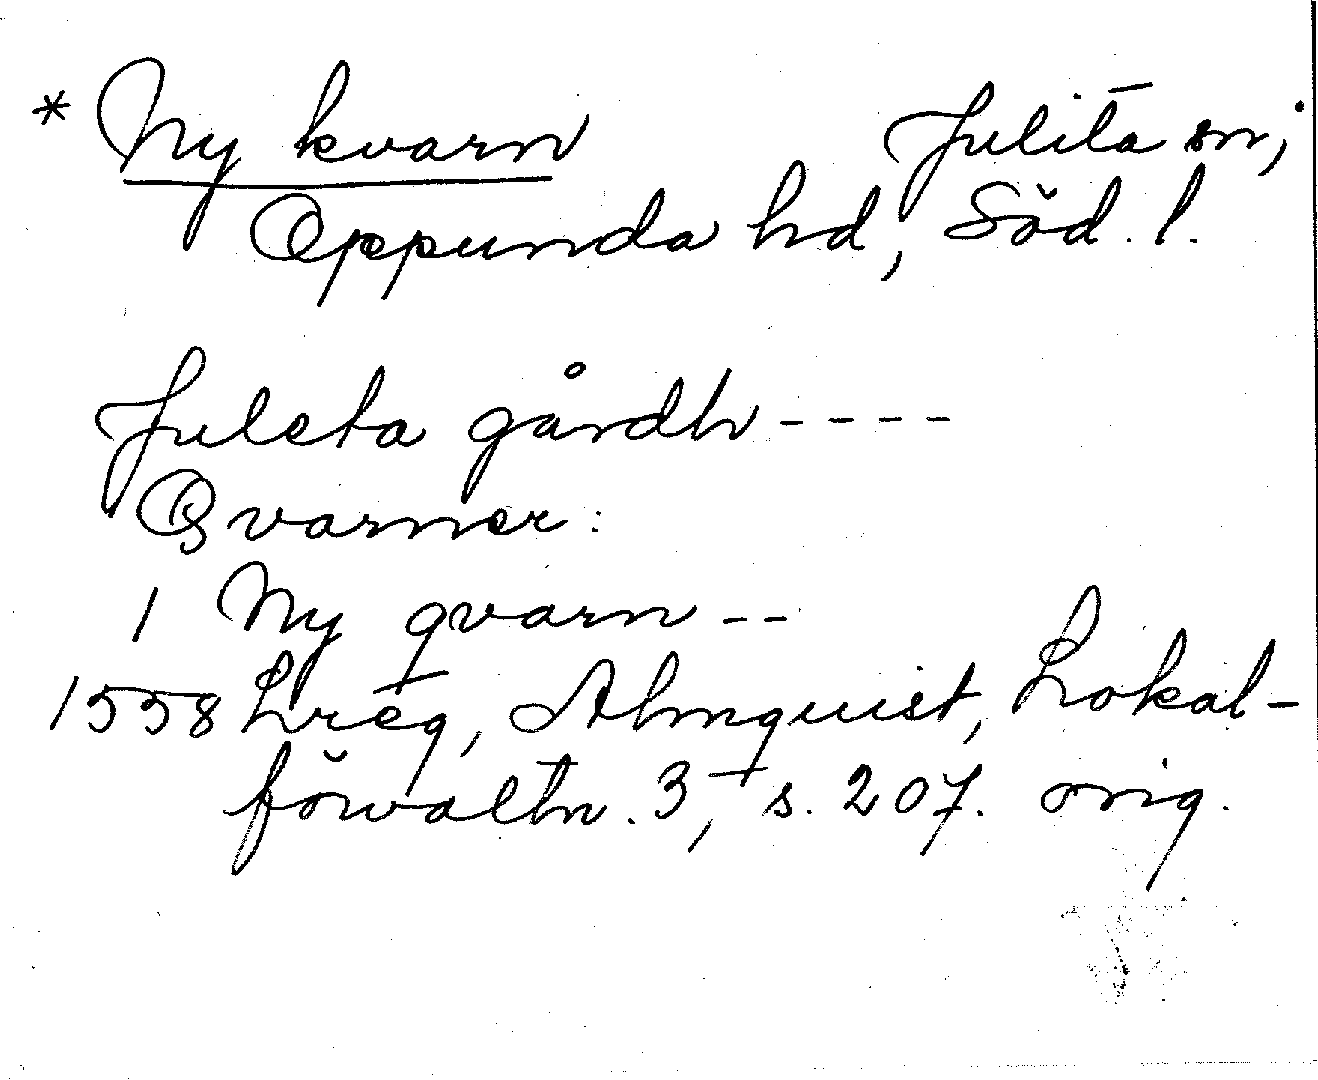 * Ny kvarn Julita sn,
Oppunda hd, Söd. l.
Juleta gårdh - - - -
Qvarner:
1 Ny qvarn - -
1558 Lreg, Almquist, Lokal-
förvaltn. 3, s. 207. orig.